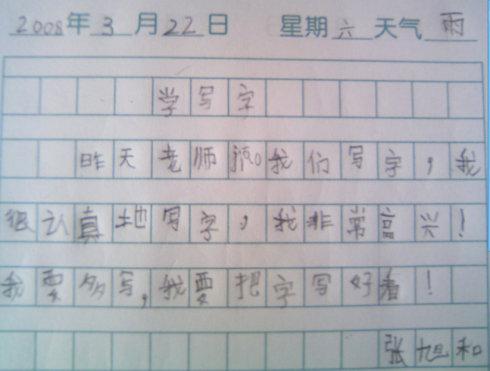 2008年3月22日 星期六 天气雨
学写字
昨天老师教我们写字，我
很认真地写字，我非常高兴！
我要多写，我要把字写好看！
张旭和